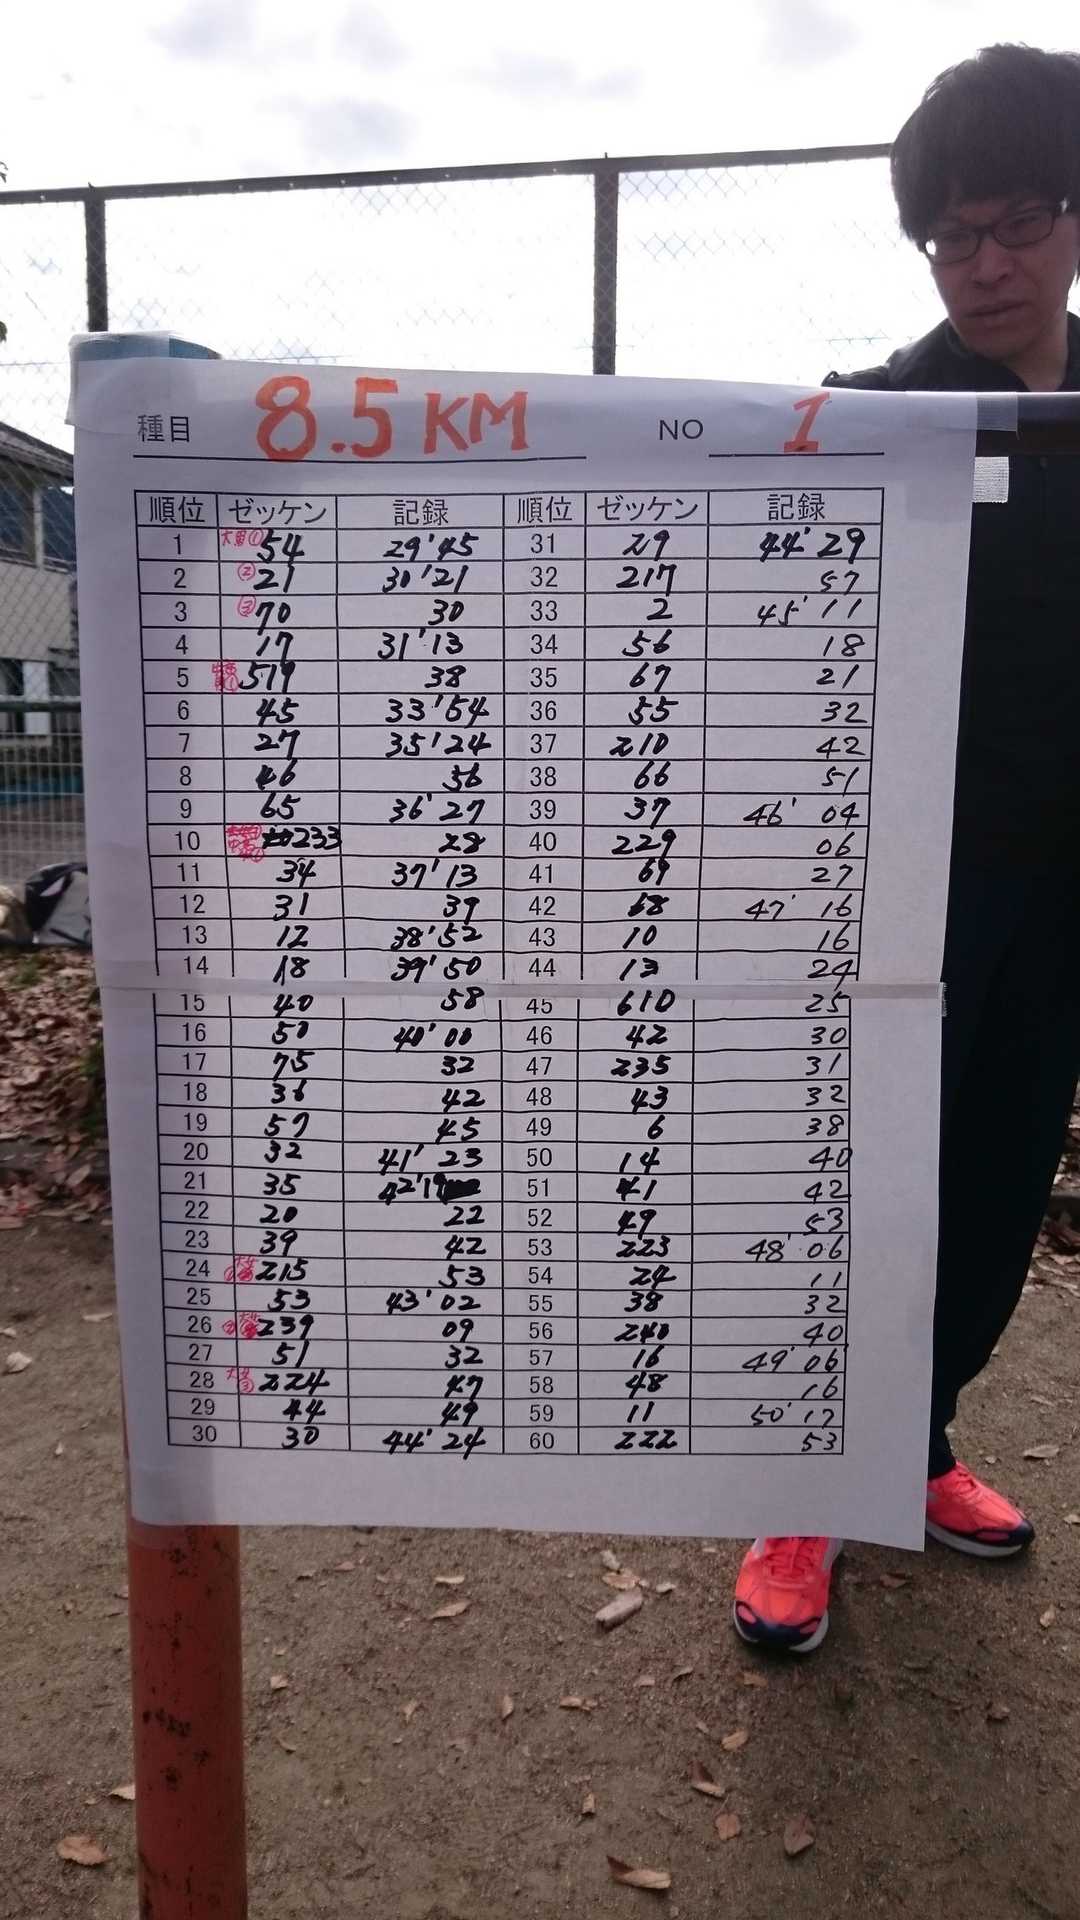 種目 8.5KM NO 1
順位 ゼッケン 記録 順位 ゼッケン 記録
1 大男① 54 29'45 31 29 44'29
2 ② 21 30'21 32 217 57
3 ③ 70 30 33 2 45'11
4 17 31'13 34 56 18
5 519 38 35 67 21
6 45 33'54 36 55 32
7 27 35'24 37 210 42
8 46 56 38 66 51
9 65 36'27 39 37 46'04
10 233 28 40 229 06
11 34 37'13 41 69 27
12 31 39 42 68 47'16
13 12 38'52 43 10 16
14 18 39'50 44 13 24
15 40 58 45 610 25
16 50 40'00 46 42 30
17 75 32 47 235 31
18 36 42 48 43 32
19 57 45 49 6 38
20 32 41'23 50 14 40
21 35 42'19 51 41 42
22 20 22 52 49 53
23 39 42 53 223 48'06
24 215 53 54 24 11
25 53 43'02 55 38 32
26 239 09 56 240 40
27 51 32 57 16 49'06
28 大女③ 224 47 58 48 16
29 44 49 59 11 50'17
30 30 44'24 60 222 53